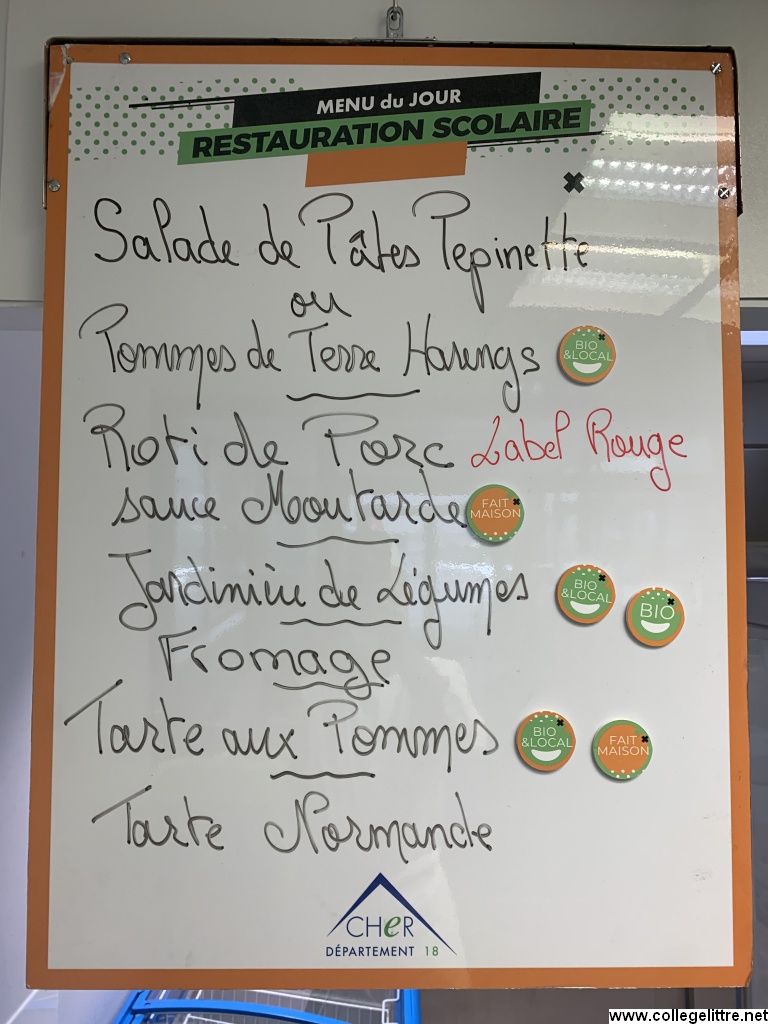 MENU du JOUR
RESTAURATION SCOLAIRE
Salade de Pâtes Pepinette
ou
Pommes de Terre Harengs
BIO
&LOCAL
Roti de Porc Label Rouge
sauce Moutarde
FAIT
MAISON
Jardinière de Légumes
BIO
&LOCAL
BIO
Fromage
Tarte aux Pommes
BIO
&LOCAL
FAIT
MAISON
Tarte Normande
CHeR
DÉPARTEMENT 18
www.collegelittre.net